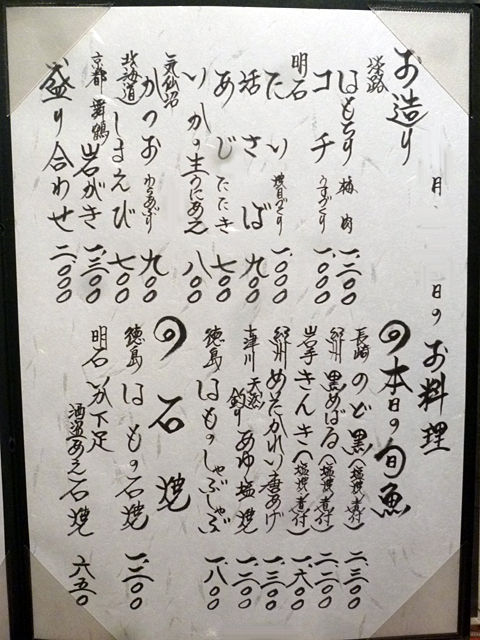 月 日の お料理
お造り
淡路 はもちり 梅肉 一、二〇〇
コチ うすづくり 一、〇〇〇
明石 たい 焼目づくり 一、〇〇〇
活さば 九〇〇
あじ たたき 七〇〇
いかの生うにあえ 八〇〇
気仙沼 かつお わらあぶり 九〇〇
北海道 しまえび 七〇〇
京都 舞鶴 岩がき 一、三〇〇
盛り合わせ 二、〇〇〇
の 本日の旬魚
長崎 のど黒(塩焼・煮付) 二、三〇〇
紀州 黒めばる(塩焼・煮付) 二、二〇〇
岩手 きんき(塩焼・煮付) 一、六〇〇
紀州 めいたかれい唐あげ 一、三〇〇
十津川 天然 釣り あゆ塩焼 一、二〇〇
徳島 はものしゃぶしゃぶ 一、八〇〇
の 石焼
徳島 はもの石焼 一、三〇〇
明石 いか下足 酒盗あえ石焼 六五〇